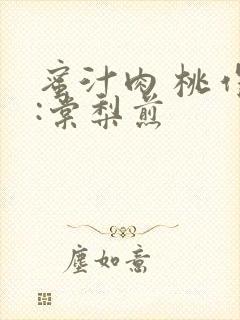 蜜汁肉桃作
:棠梨煎
尘如意